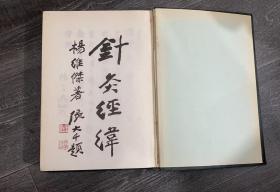 針灸經緯
楊維傑著 張大千題